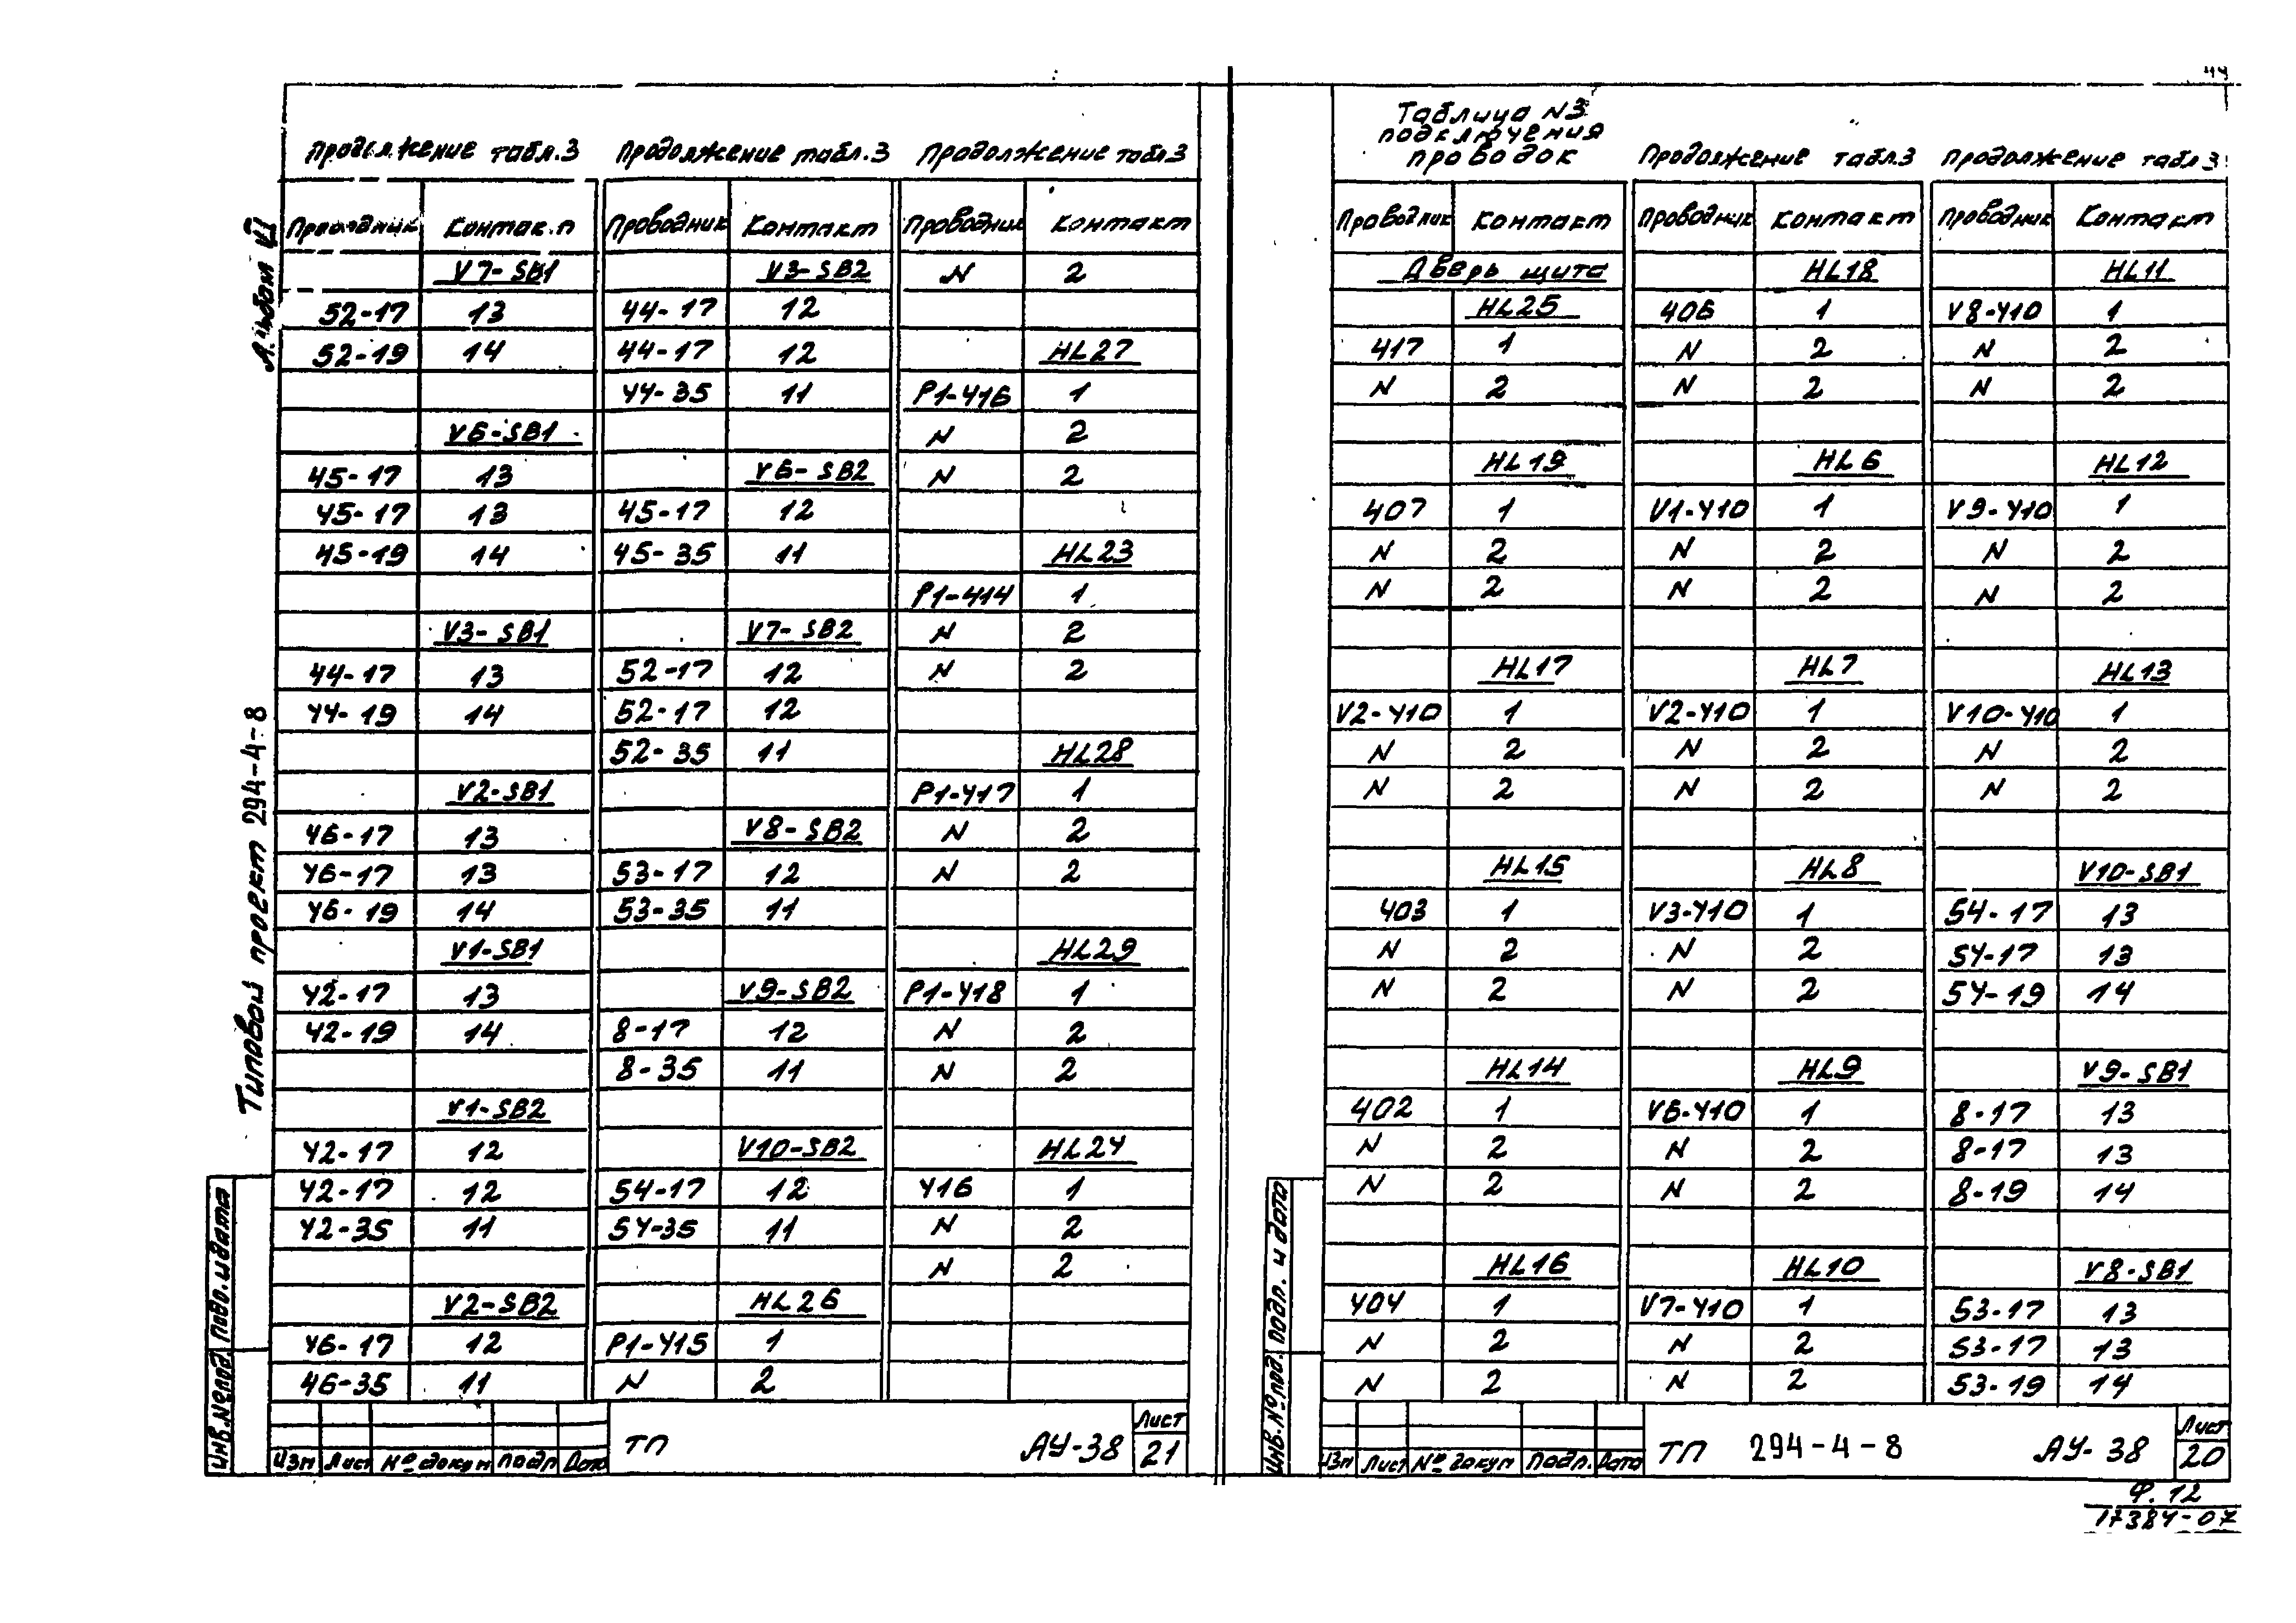 44
Альбом VI
Типовой проект 294-4-8
Продолжение табл.3
Проводник Контакт
V7-SB1
52-17 13
52-19 14
V6-SB1
45-17 13
45-17 13
45-19 14
V3-SB1
44-17 13
44-19 14
V2-SB1
46-17 13
46-17 13
46-19 14
V1-SB1
42-17 13
42-19 14
V1-SB2
42-17 12
42-17 12
42-35 11
V2-SB2
46-17 12
46-35 11
Продолжение табл.3
Проводник Контакт
V3-SB2
44-17 12
44-17 12
44-35 11
V6-SB2
45-17 12
45-35 11
V7-SB2
52-17 12
52-17 12
52-35 11
V8-SB2
53-17 12
53-35 11
V9-SB2
8-17 12
8-35 11
V10-SB2
54-17 12
54-35 11
HL26
P1-415 1
N 2
Продолжение табл 3
Проводник Контакт
N 2
HL27
P1-416 1
N 2
N 2
HL23
P1-414 1
N 2
N 2
HL28
P1-417 1
N 2
N 2
HL29
P1-418 1
N 2
N 2
HL24
416 1
N 2
N 2
Инв.№подл. Подп. и дата
Изм Лист № докум Подп Дата
ТП
АУ-38
Лист
21
Таблица N3
подключения
проводок
Проводник Контакт
Дверь щита
HL25
417 1
N 2
HL19
407 1
N 2
N 2
HL17
V2-410 1
N 2
N 2
HL15
403 1
N 2
N 2
HL14
402 1
N 2
N 2
HL16
404 1
N 2
N 2
Продолжение табл.3
Проводник Контакт
HL18
406 1
N 2
N 2
HL6
V1-410 1
N 2
N 2
HL7
V2-410 1
N 2
N 2
HL8
V3-410 1
N 2
N 2
HL9
V6-410 1
N 2
N 2
HL10
V7-410 1
N 2
N 2
Продолжение табл 3
Проводник Контакт
HL11
V8-410 1
N 2
N 2
HL12
V9-410 1
N 2
N 2
HL13
V10-410 1
N 2
N 2
V10-SB1
54-17 13
54-17 13
54-19 14
V9-SB1
8-17 13
8-17 13
8-19 14
V8-SB1
53-17 13
53-17 13
53-19 14
Инв.№подл. Подп. и дата
Изм Лист № докум Подп. Дата
ТП 294-4-8
АУ-38
Лист
20
Ф. 12
17384-07